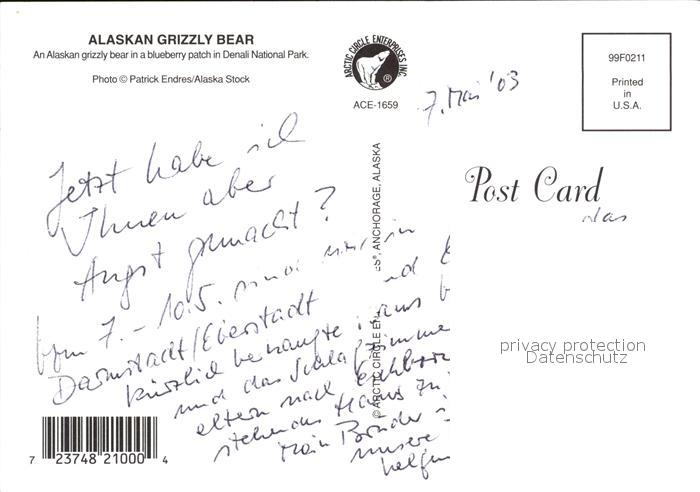 ALASKAN GRIZZLY BEAR
An Alaskan grizzly bear in a blueberry patch in Denali National Park.
Photo © Patrick Endres/Alaska Stock
ARCTIC CIRCLE ENTERPRISES INC.
®
ACE-1659
99F0211
Printed
in
U.S.A.
7. Mai '03
Post Card
das
Jetzt habe ich
Ihnen aber
Angst gemacht?
Vom 7. - 10.5. sind wir in
Darmstadt/Eberstadt und
kürzlich
und das Schlafzimmer
eltern nach
stehendes Haus zu
Mein Bruder
unsere
helfen
© ARCTIC CIRCLE EN ES®, ANCHORAGE, ALASKA
privacy protection
Datenschutz
7 23748 21000 4